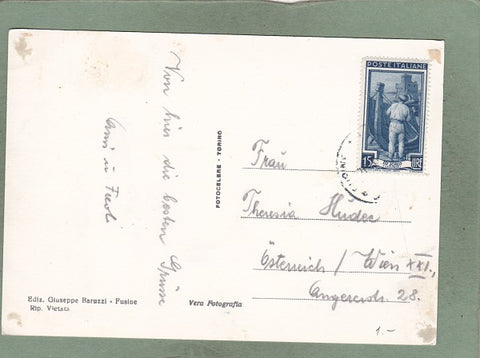 Von hier die besten Grüsse
POSTE ITALIANE
15
LIRE
FOTOCELERE - TORINO
Frau
Theresia Hudec
Österreich / Wien XXI.,
Angererstr. 28.
Ediz. Giuseppe Baruzzi - Fusine
Rip. Vietata
Vera Fotografia
1.-